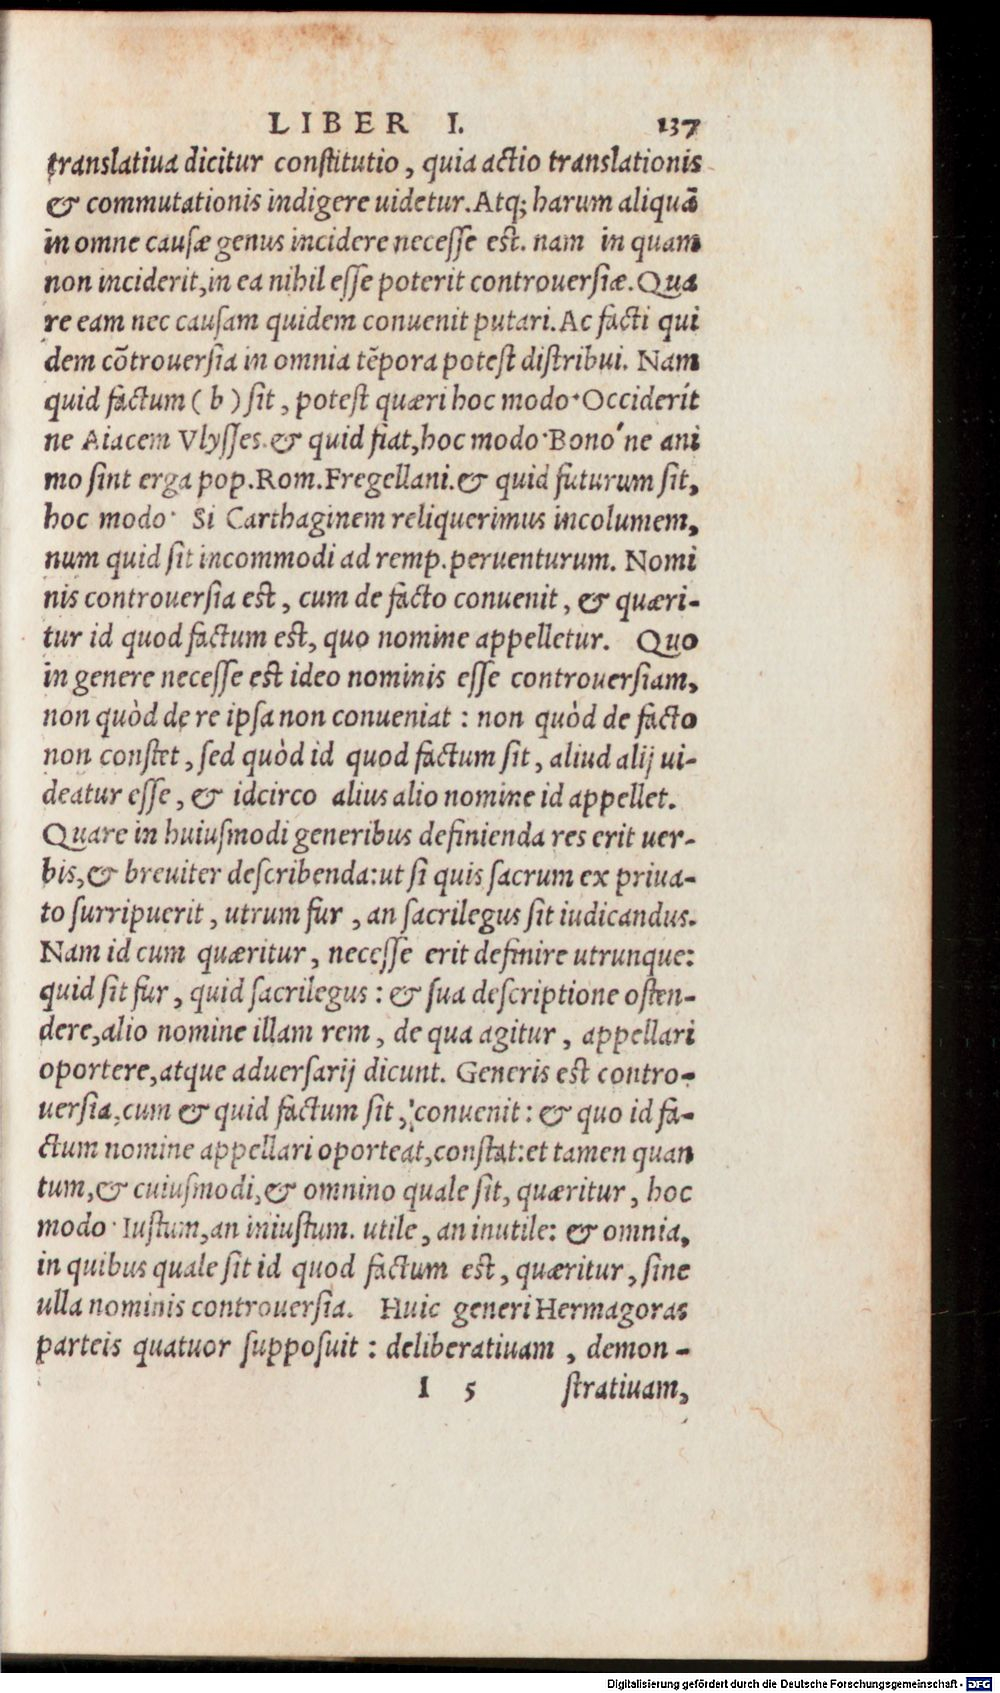 LIBER I. 137
translatiua dicitur constitutio, quia actio translationis
& commutationis indigere uidetur. Atq; harum aliquā
in omne causæ genus incidere necesse est. nam in quam
non inciderit, in ea nihil esse poterit controuersiæ. Qua
re eam nec causam quidem conuenit putari. Ac facti qui
dem cōtrouersia in omnia tēpora potest distribui. Nam
quid factum ( b ) sit, potest quæri hoc modo· Occiderít
ne Aiacem Vlysses. & quid fiat, hoc modo· Bono´ne ani
mo sint erga pop. Rom. Fregellani. & quid futurum sit,
hoc modo· Si Carthaginem reliquerimus incolumem,
num quid sit incommodi ad remp. peruenturum. Nomi
nis controuersia est, cum de facto conuenit, & quæri-
tur id quod factum est, quo nomine appelletur. Quo
in genere necesse est ideo nominis esse controuersiam,
non quòd de re ipsa non conueniat : non quòd de facto
non constet, sed quòd id quod factum sit, aliud alij ui-
deatur esse, & idcirco alius alio nomine id appellet.
Quare in huiusmodi generibus definienda res erit uer-
bis, & breuiter describenda: ut si quis sacrum ex priua-
to surripuerit, utrum fur, an sacrilegus sit iudicandus.
Nam id cum quæritur, necesse erit definire utrunque:
quid sit fur, quid sacrilegus : & sua descriptione osten-
dere, alio nomine illam rem, de qua agitur, appellari
oportere, atque aduersarij dicunt. Generis est contro-
uersia, cum & quid factum sit, conuenit : & quo id fa-
ctum nomine appellari oporteat, constat: et tamen quan
tum, & cuiusmodi, & omnino quale sit, quæritur, hoc
modo· Iustum, an iniustum. utile, an inutile: & omnia,
in quibus quale sit id quod factum est, quæritur, sine
ulla nominis controuersia. Huic generi Hermagoras
parteis quatuor supposuit : deliberatiuam, demon-
I 5 stratiuam,
Digitalisierung gefördert durch die Deutsche Forschungsgemeinschaft - DFG